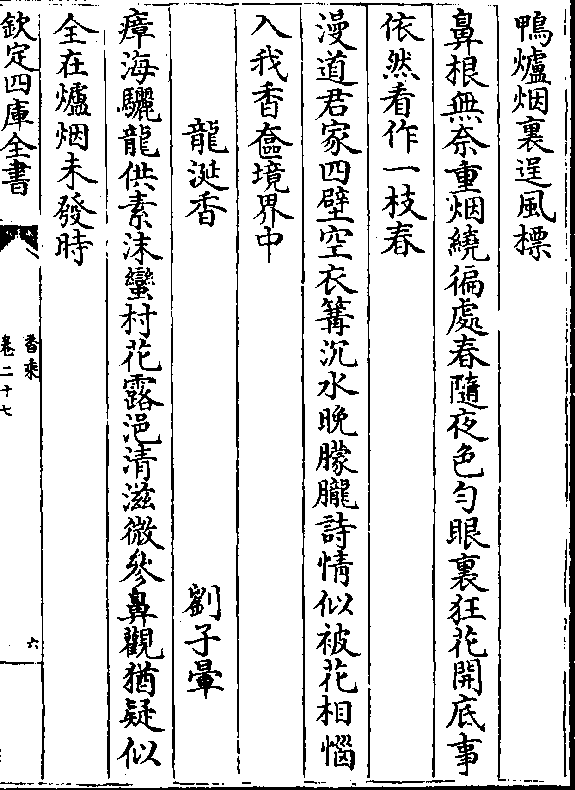 鴨爐烟裏逞風標
鼻根無奈重烟繞徧處春隨夜色勻眼裏狂花開底事
依然看作一枝春
漫道君家四壁空衣篝沉水晚朦朧詩情似被花相惱
入我香奩境界中
龍涎香 劉子翬
瘴海驪龍供素沫蠻村花露浥清滋微參鼻觀猶疑似
全在爐烟未發時
欽定四庫全書
香乘
卷二十七
六